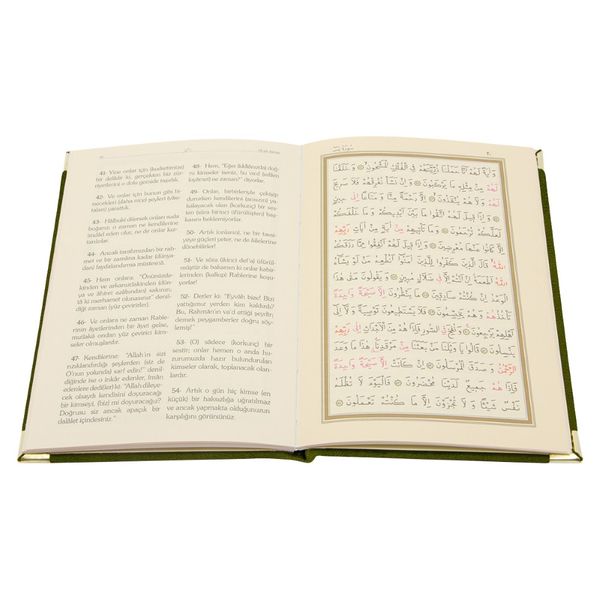 41- Yine onlar için (kudretimize)
bir delildir ki, gerçekten biz zür-
riyetlerini o dolu gemide taşıdık.
42- Ve onlar için bunun gibi
binecekleri (daha nice) şeyleri
yarattık.
43- Hâlbuki dilemek onları suda
boğarız da o zaman ne kendilerine
imdâd eden olur, ne de onlar kur-
tarılırlar.
44- Ancak tarafımızdan bir rah-
met ve bir zamana kadar (dünya-
dan) faydalandırma müstesnâ.
45- Hem onlara: "Önünüzde-
kinden ve arkanızdakinden
sakının;
tâ ki merhamet olunasınız" denil-
diği zaman (yüz çevirirler).
46- Ve onlara ne zaman Rable-
rinin âyetlerinden bir âyet gelse,
mutlaka ondan yüz çevirici kim-
seler olmuşlardır.
47- Kendilerine: "Allah'ın sizi
rızıklandırdığı şeylerden (siz de
O'nun yolunda) sarf edin!" denil-
diğinde ise o inkâr edenler, îmân
edenlere dediler ki: "Allah dileye-
cek olsaydı kendisini doyuracağı
bir kimseyi, (biz mi) doyuracağız?
Doğrusu siz ancak apaçık bir
dalâlet içindesiniz."
48- Hem, "Eğer (iddiânızda) doğ-
ru kimseler iseniz, bu vaad (edilen
kıyâmet) ne zaman?" diyorlar.
49- Onlar, birbirleriyle çekişip
dururlarken kendilerini (ansızın) ya-
kalayacak olan (korkunç) bir ses-
ten (sûra birinci üfürülüşten) baş-
kasını beklemiyorlar.
50- Artık (onlar) ne bir tavsi-
yeye güçleri yeter, ne de âilelerine
dönebilirler!
51- Ve sûra (ikinci def'a) üfürül-
müştür de bakarsın ki onlar kabir-
lerinden (kalkıp) Rablerine koşu-
yorlar.
52- Derler ki: "Eyvâh bize! Bizi
yattığımız yerden kim kaldırdı?
Bu, Rahmân'ın va'd ettiği şeydir;
demek peygamberler doğru söyle-
miş!"
53- (O) sâdece (korkunç) bir
sestir; onlar hemen o anda hu-
zûrumuzda hazır bulundurulan
kimseler olarak, toplanacak olan-
lardır.
54- Artık o gün hiç kimse (en
küçük) bir haksızlığa uğratılmaz
ve ancak yapmakta olduğunuzun
karşılığını görürsünüz.
وَاٰيَةٌ لَهُمْ اَنَّا حَمَلْنَا ذُرِّيَّتَهُمْ فِي الْفُلْكِ الْمَشْحُونِ وَخَلَقْنَا
لَهُمْ مِنْ مِثْلِهِ مَا يَرْكَبُونَ وَاِنْ نَشَأْ نُغْرِقْهُمْ فَلَا صَرِيخَ
لَهُمْ وَلَا هُمْ يُنْقَذُونَ اِلَّا رَحْمَةً مِنَّا وَمَتَاعًا اِلٰى
حِينٍ وَاِذَا قِيلَ لَهُمُ اتَّقُوا مَا بَيْنَ اَيْدِيكُمْ وَمَا خَلْفَكُمْ
لَعَلَّكُمْ تُرْحَمُونَ وَمَا تَأْتِيهِمْ مِنْ اٰيَةٍ مِنْ اٰيَاتِ رَبِّهِمْ
اِلَّا كَانُوا عَنْهَا مُعْرِضِينَ وَاِذَا قِيلَ لَهُمْ اَنْفِقُوا مِمَّا رَزَقَكُمُ
اللّٰهُ قَالَ الَّذِينَ كَفَرُوا لِلَّذِينَ اٰمَنُوا اَنُطْعِمُ مَنْ لَوْ يَشَاءُ
اللّٰهُ اَطْعَمَهُ اِنْ اَنْتُمْ اِلَّا فِي ضَلَالٍ مُبِينٍ وَيَقُولُونَ مَتٰى هٰذَا
الْوَعْدُ اِنْ كُنْتُمْ صَادِقِينَ مَا يَنْظُرُونَ اِلَّا صَيْحَةً وَاحِدَةً
تَأْخُذُهُمْ وَهُمْ يَخِصِّمُونَ فَلَا يَسْتَطِيعُونَ تَوْصِيَةً وَلَا اِلٰى
اَهْلِهِمْ يَرْجِعُونَ وَنُفِخَ فِي الصُّورِ فَاِذَا هُمْ مِنَ الْاَجْدَاثِ اِلٰى رَبِّهِمْ
يَنْسِلُونَ قَالُوا يَا وَيْلَنَا مَنْ بَعَثَنَا مِنْ مَرْقَدِنَا هٰذَا مَا وَعَدَ
الرَّحْمٰنُ وَصَدَقَ الْمُرْسَلُونَ اِنْ كَانَتْ اِلَّا صَيْحَةً وَاحِدَةً
فَاِذَا هُمْ جَمِيعٌ لَدَيْنَا مُحْضَرُونَ فَالْيَوْمَ لَا تُظْلَمُ
نَفْسٌ شَيْئًا وَلَا تُجْزَوْنَ اِلَّا مَا كُنْتُمْ تَعْمَلُونَ